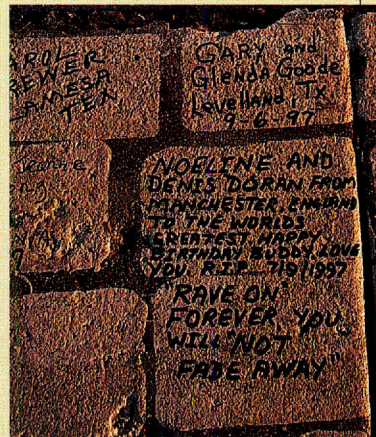 AROL
EWER
LAMESA
TEX
GARY and
Glenda Goode
Levelland, Tx
9-6-97
NOELINE AND
DENIS DORAN FROM
MANCHESTER ENGLAND
TO THE WORLDS
GREATEST HAPPY
BIRTHDAY BUDDY, LOVE
YOU R.I.P. 7/9/1997
"RAVE ON"
FOREVER, YOU
WILL "NOT
FADE AWAY"